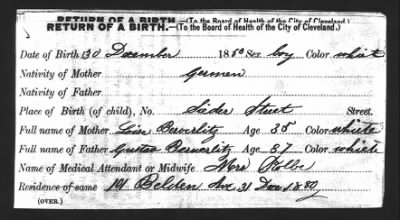 RETURN OF A BIRTH.—(To the Board of Health of the City of Cleveland.)
RETURN OF A BIRTH.—(To the Board of Health of the City of Cleveland.)
Date of Birth 30 December 1880 Sex boy Color white
Nativity of Mother German
Nativity of Father
Place of Birth (of child), No. Street Street.
Full name of Mother Age 35 Color white
Full name of Father Gustav Age 37 Color white
Name of Medical Attendant or Midwife Mrs
Residence of same 191 Belden Ave 31 Dec 1880
(OVER.)